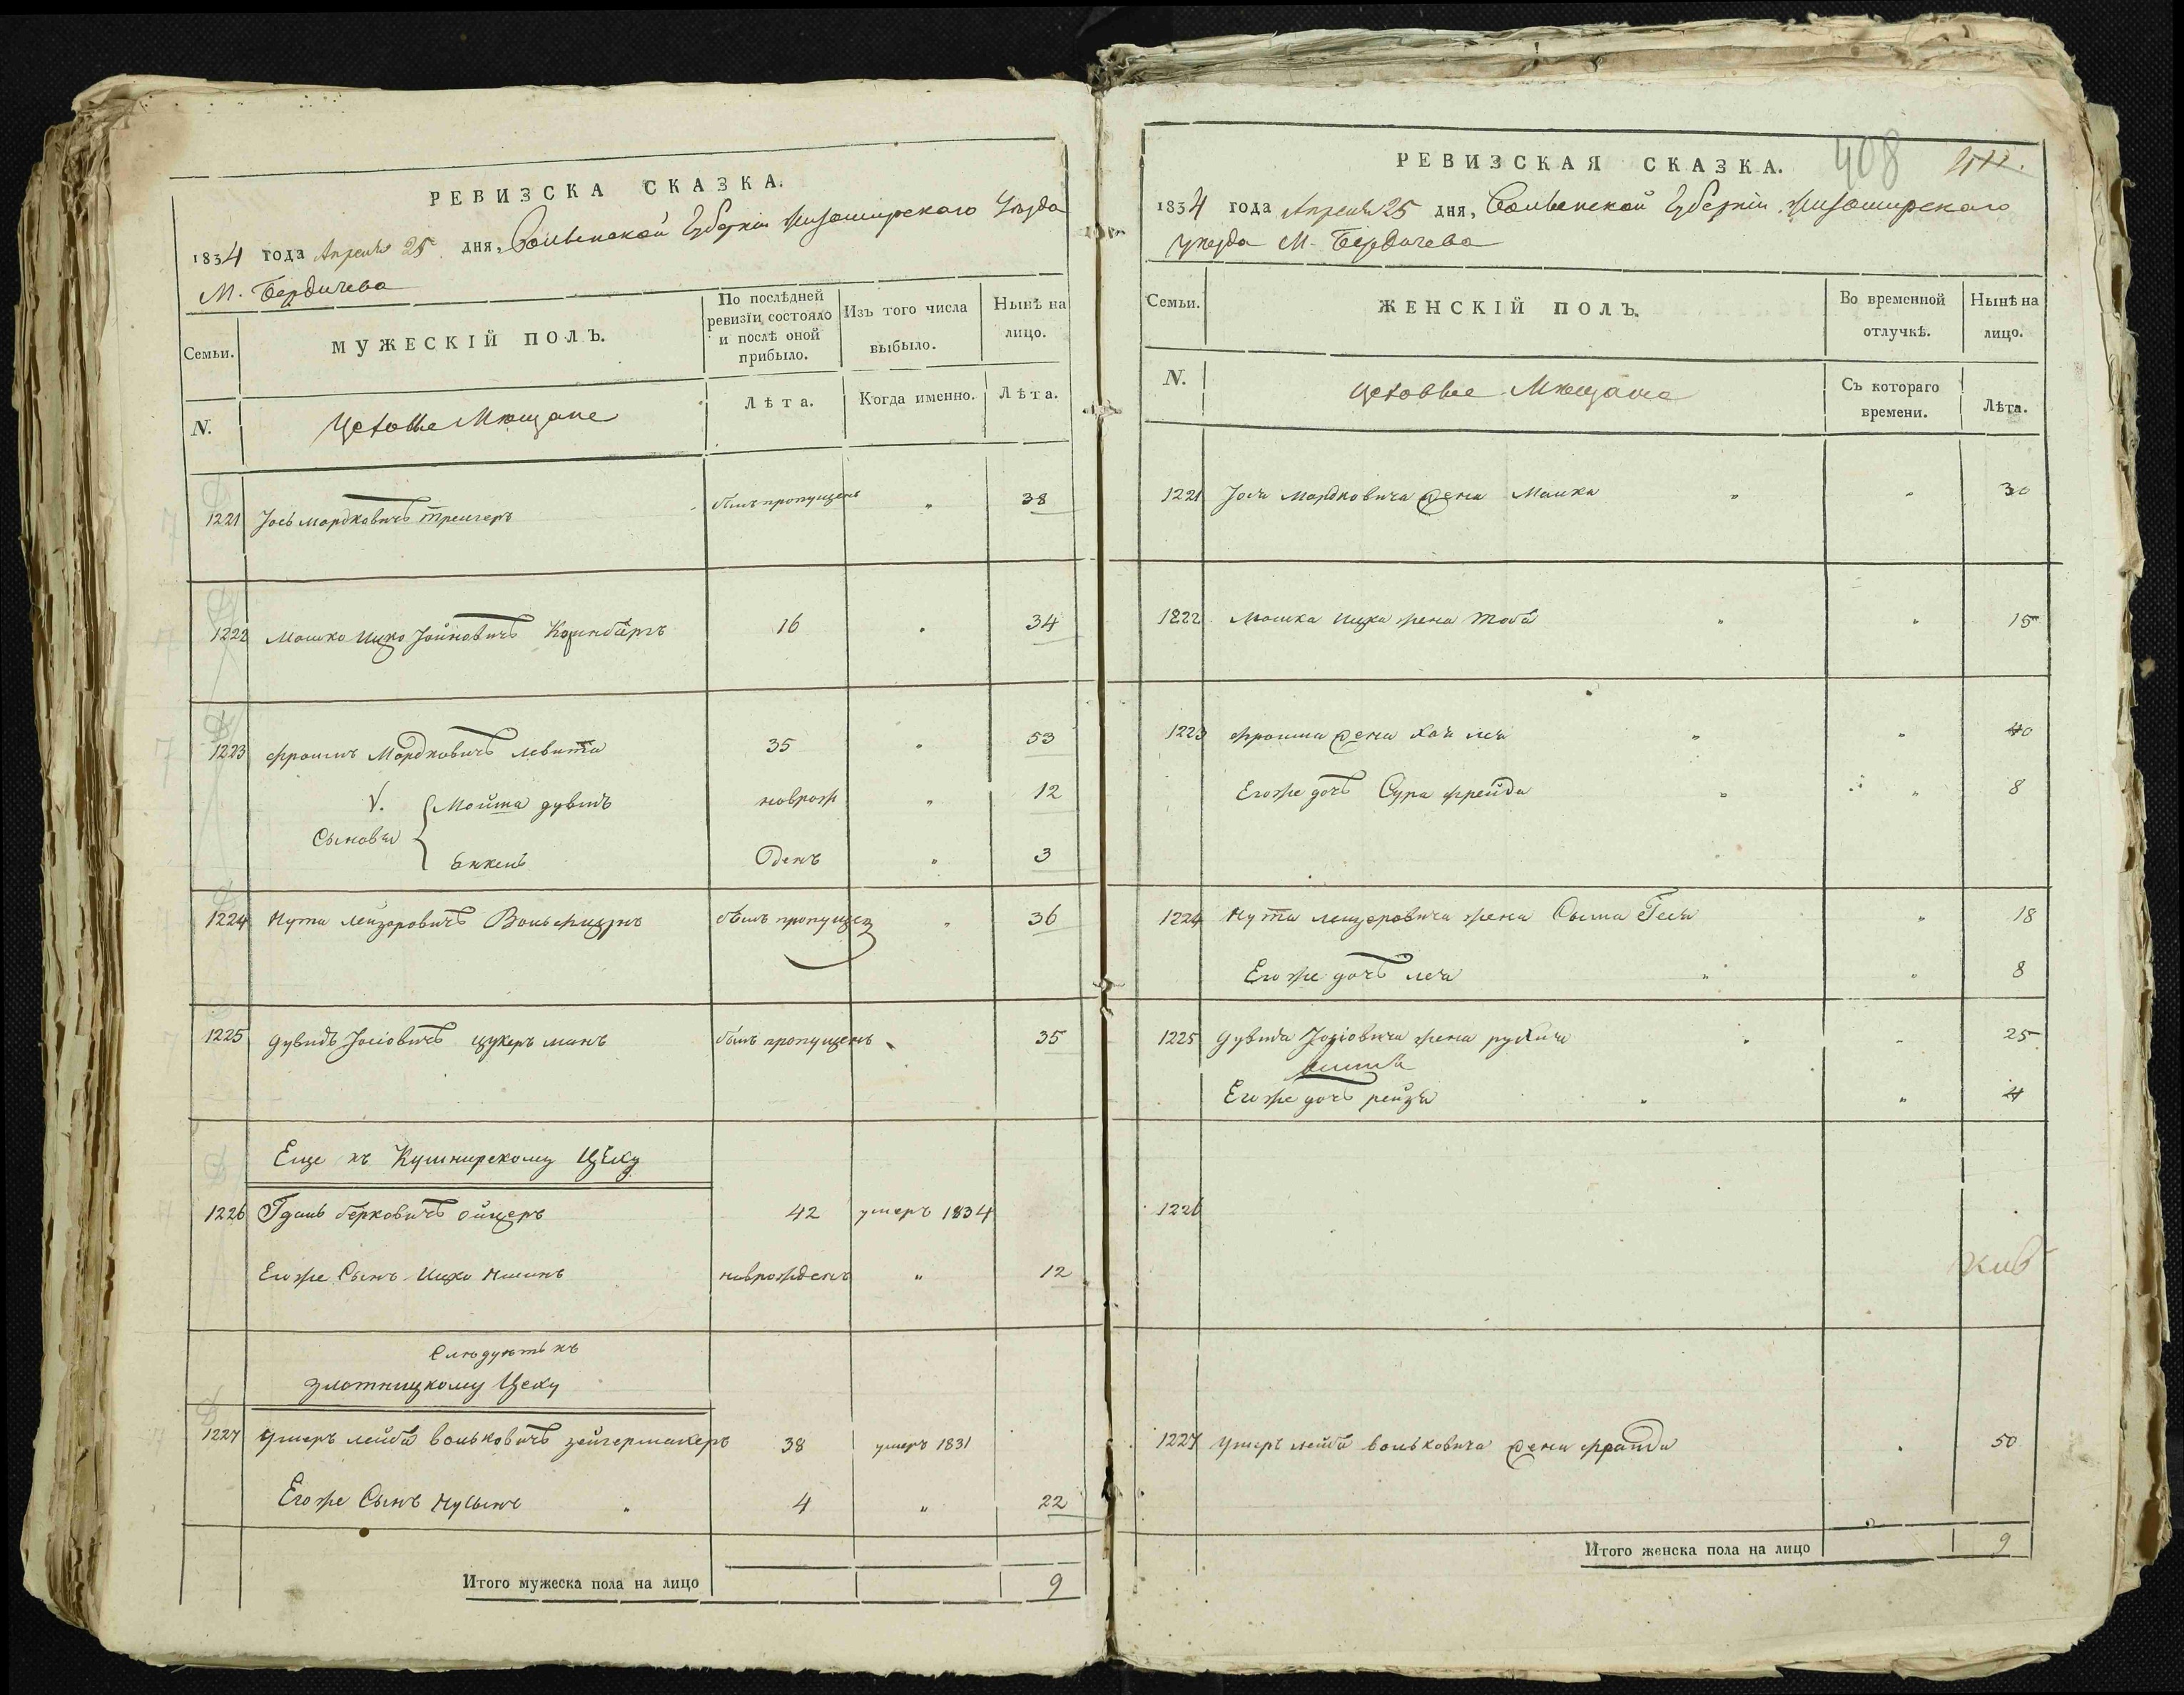 РЕВИЗСКА СКАЗКА.
1834 года Апреля 25 дня, Волынской Губерніи Житомирского Уѣзда
М. Бердичева
Семьи.
МУЖЕСКІЙ ПОЛЪ.
По послѣдней ревизіи состояло и послѣ оной прибыло.
Изъ того числа выбыло.
Нынѣ на лицо.
N.
Цеховые Мѣщане
Лѣта.
Когда именно.
Лѣта.
1221 Іось Мордковичъ былъ пропущенъ „ 38
1222 Мошко Ицко 16 „ 34
1223 Фроимъ Мордковичъ Левита 35 „ 53
V. Сыновья
Мойша дувидъ новрож „ 12
Янкель денъ „ 3
1224 Нута Лейзоровичъ былъ пропущен „ 36
1225 Дувидъ Іосіовичъ цукерманъ былъ пропущенъ 35
Еще къ Кушнирскому Цеху
1226 берковичъ 42 умеръ 1834
Егоже Сынъ Ицко новрожденъ „ 12
Слѣдуетъ къ
злотницкому Цеху
1227 Умеръ лейба вольковичъ зейгермахеръ 38 умеръ 1831
Егоже Сынъ Нусынъ „ 4 „ 22
Итого мужеска пола на лицо 9
РЕВИЗСКАЯ СКАЗКА.
408
1834 года Апреля 25 дня, Волынской Губерніи Житомирского
Уѣзда М. Бердичева
Семьи.
ЖЕНСКІЙ ПОЛЪ.
Во временной отлучкѣ.
Нынѣ на лицо.
N.
Цеховые Мѣщане
Съ котораго времени.
Лѣта.
1221 Іося Мордковича жена Малка „ „ 30
1222 Мошка Ицка жена Тоба „ „ 15
1223 Фроима жена Хая лея „ „ 40
Егоже дочь Сура фрейда „ „ 8
1224 Нута лейзоровича жена „ 18
Егоже дочь лея „ „ 8
1225 Дувида Іосіовича жена рухля „ „ 25
Егоже дочь рейзя „ „ 4
1226
1227 Умеръ лейба вольковича жена 50
Итого женска пола на лицо 9